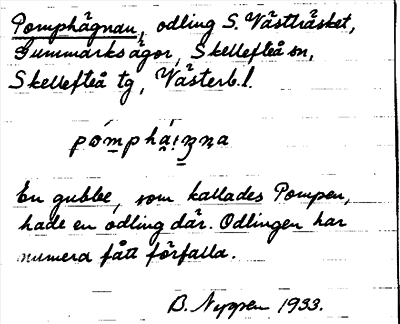 Pomphägnan, odling S. Västträsket,
Gummarksägor, Skellefteå sn,
Skellefteå tg, Västerb. l.
En gubbe, som kallades Pompen,
hade en odling där. Odlingen har
numera fått förfalla.
B. Nyppen 1933.